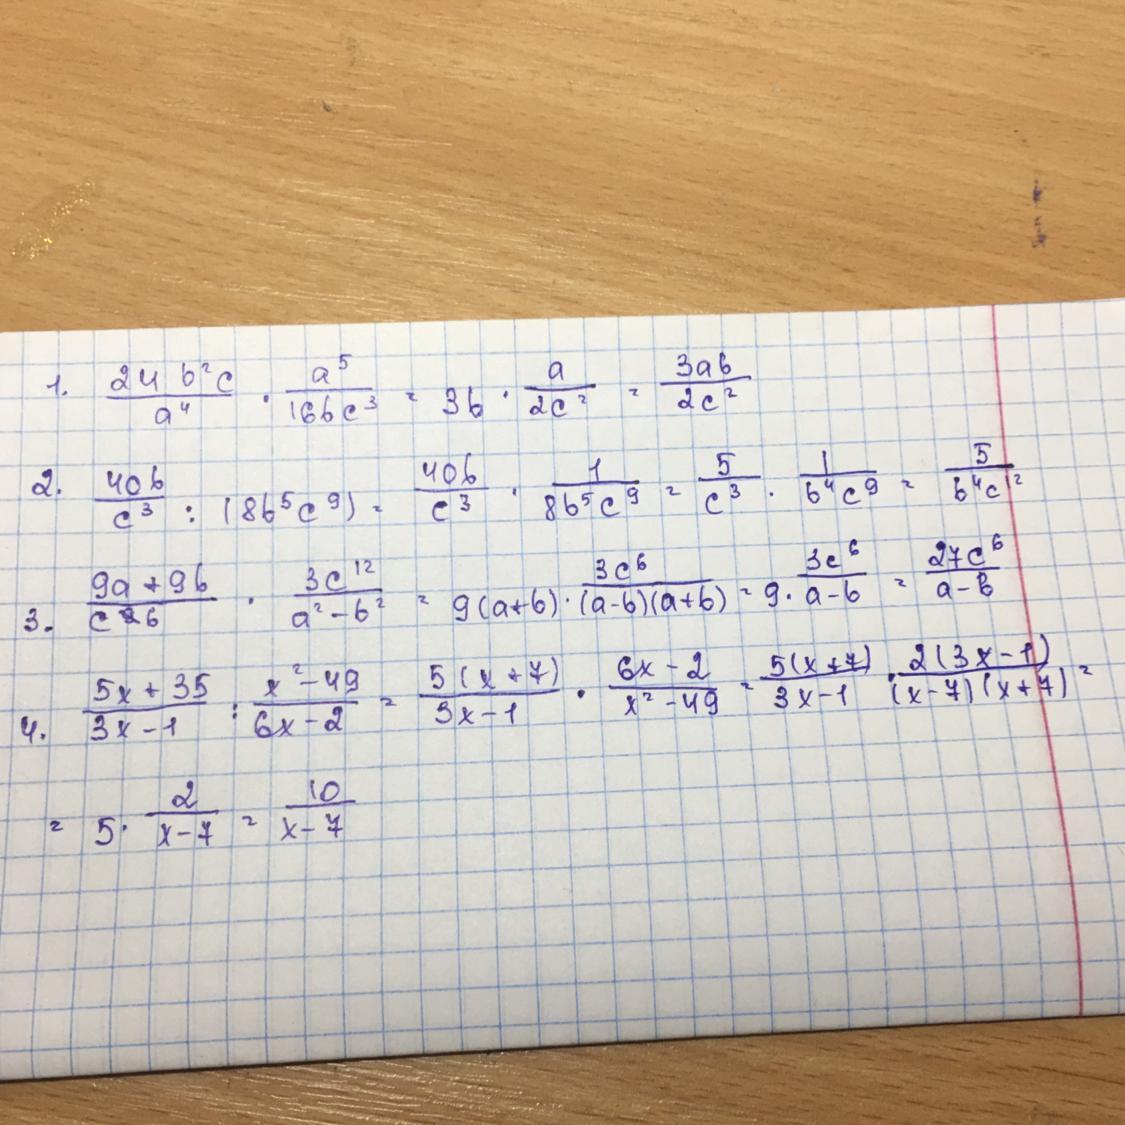 1. 24b²c/a⁴ · a⁵/16bc³ = 3b · a/2c² = 3ab/2c²
2. 40b/c³ : (8b⁵c⁹) = 40b/c³ · 1/8b⁵c⁹ = 5/c³ · 1/b⁴c⁹ = 5/b⁴c¹²
3. 9a+9b/c6 · 3c¹²/a²-b² = 9(a+b) · 3c⁶/(a-b)(a+b) = 9 · 3c⁶/a-b = 27c⁶/a-b
4. 5x+35/3x-1 : x²-49/6x-2 = 5(x+7)/3x-1 · 6x-2/x²-49 = 5(x+7)/3x-1 · 2(3x-1)/(x-7)(x+7) =
= 5 · 2/x-7 = 10/x-7